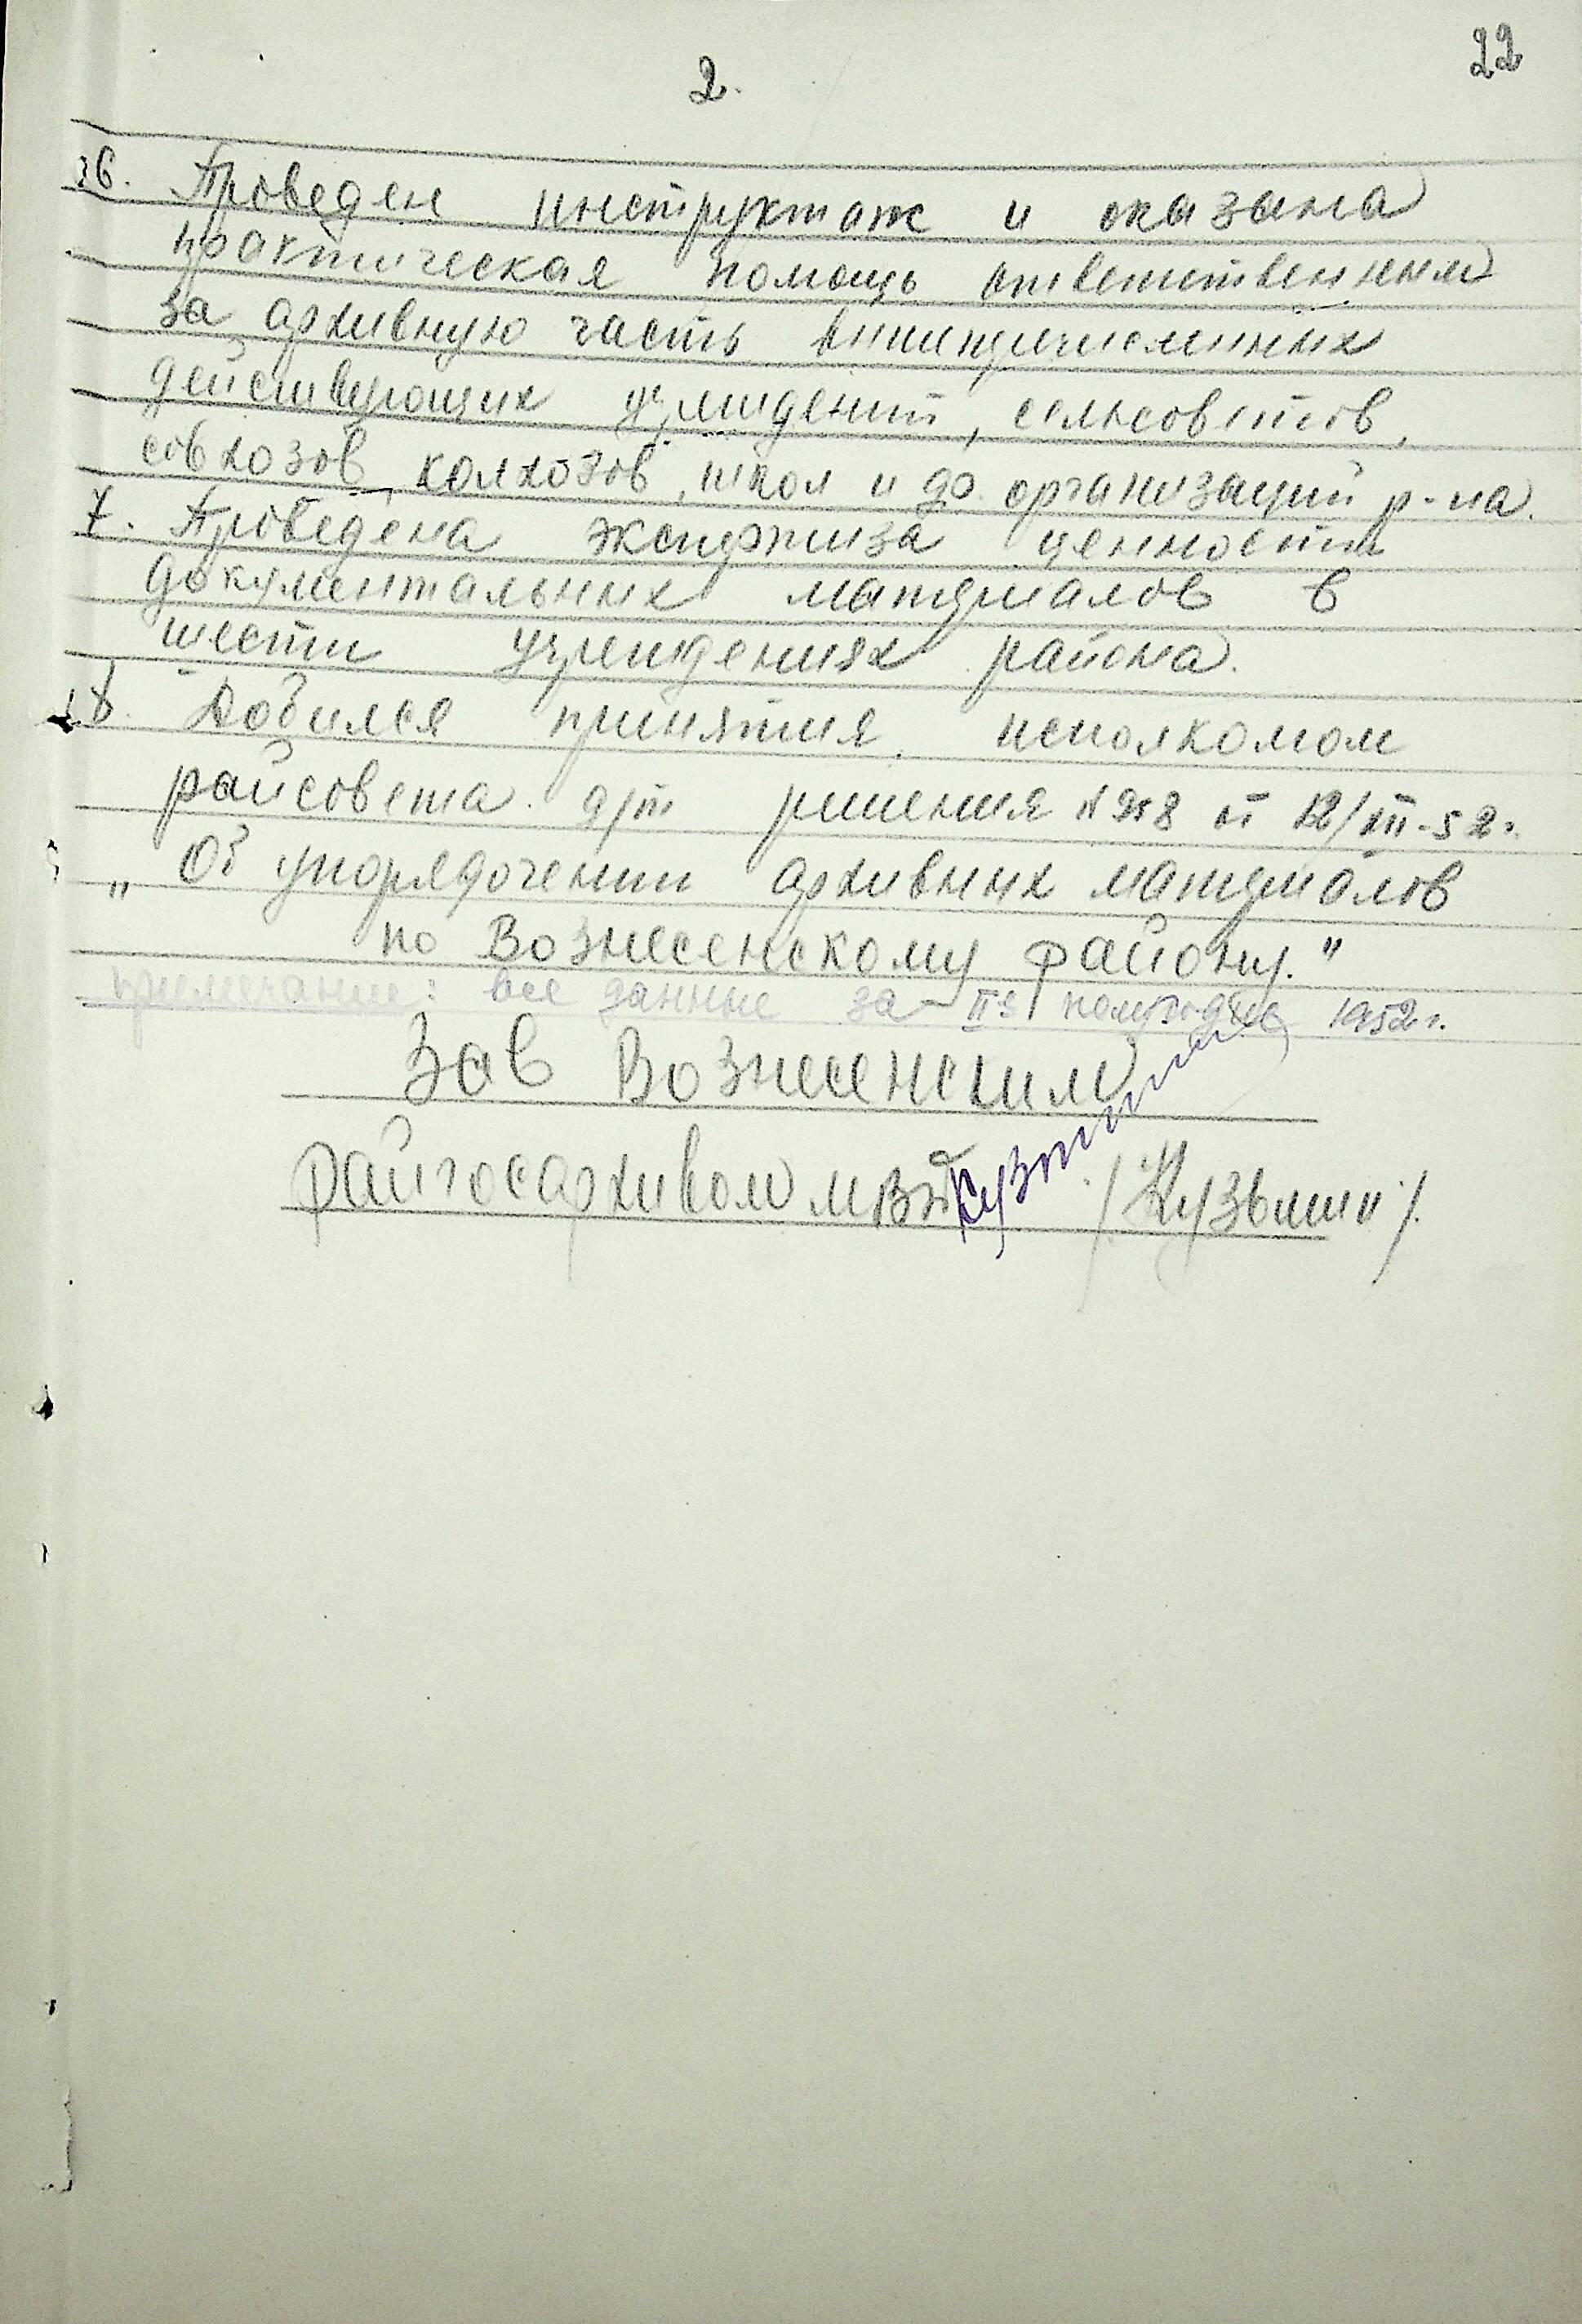 22
2.
6. Проведен инструктаж и оказана
практическая помощь ответственным
за архивную часть вышеперечисленных
действующих учреждений, сельсоветов,
совхозов, колхозов, школ и др. организаций р-на.
7. Проведена экспертиза ценности
документальных материалов в
шести учреждениях района.
8. Добился принятия исполкомом
райсовета д/т решения от 12/XII-52.
"Об упорядочении архивных материалов
по Вознесенскому району."
примечание: все данные за II-е полугодие 1952 г.
Зав Вознесенским
райгосархивом МВД Кузьмин /Кузьмин/.